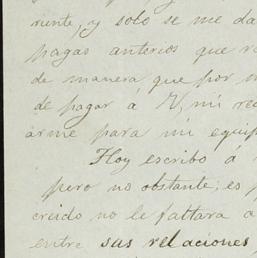 riente, y solo se me da
pagas anterios que r
de manera que por m
de pagar á V, mi re
arme para mi equip
Hoy escribo á
pero no obstante; es p
creido no le faltara a
entre sus relaciones